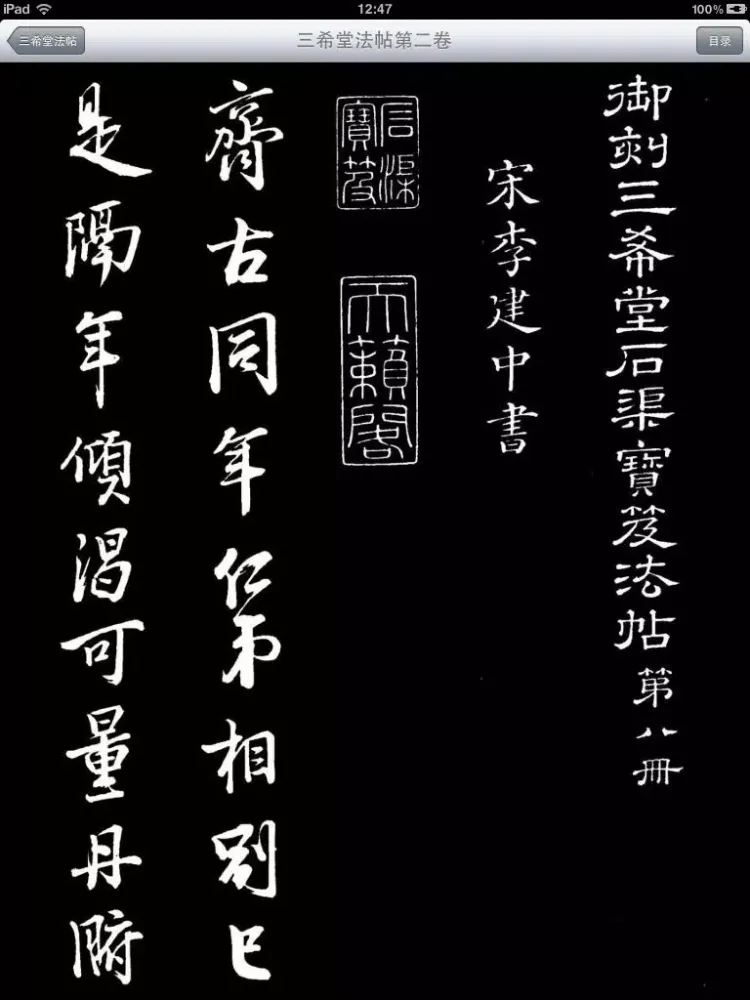 iPad 12:47 100%
三希堂法帖 三希堂法帖第二卷 目录
御刻三希堂石渠寶笈法帖第八冊
宋李建中書
石渠寶笈
天籟閣
齊古同年仁弟相別已
是隔年傾渴可量丹腑